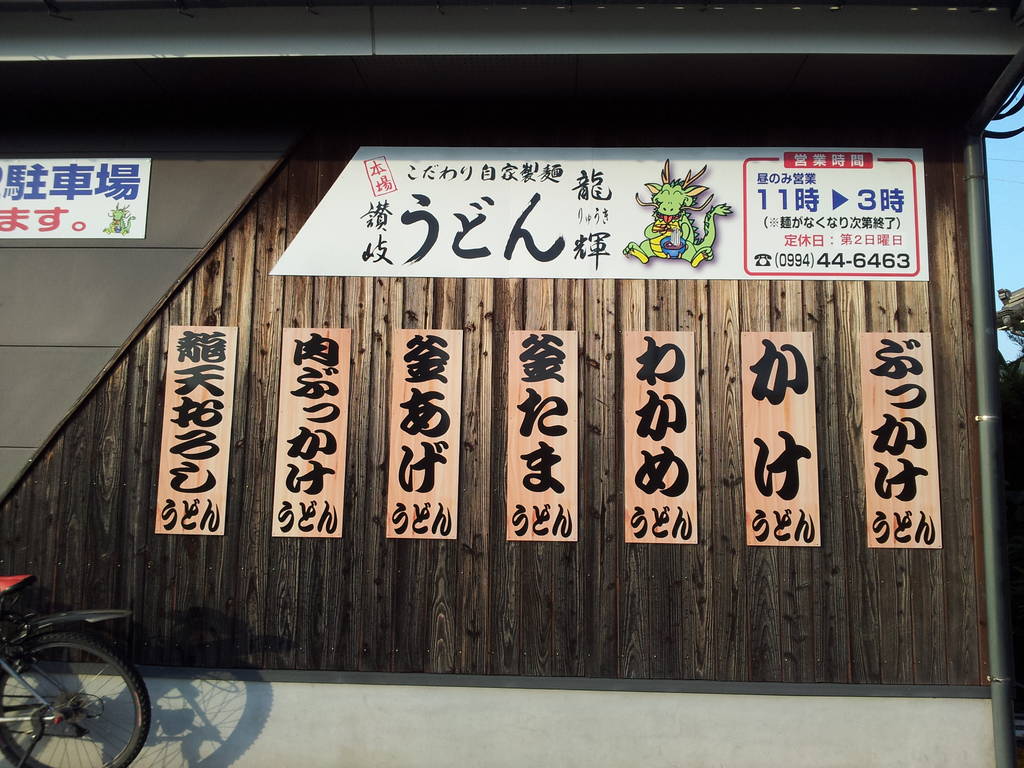 駐車場
ます。
本場
こだわり自家製麺
讃岐
うどん
龍輝
りゅうき
営業時間
昼のみ営業
11時▶3時
(※麺がなくなり次第終了)
定休日:第2日曜日
☎(0994)44-6463
ぶっかけ
うどん
かけ
うどん
わかめ
うどん
釜たま
うどん
釜あげ
うどん
肉ぶっかけ
うどん
天おろし
うどん